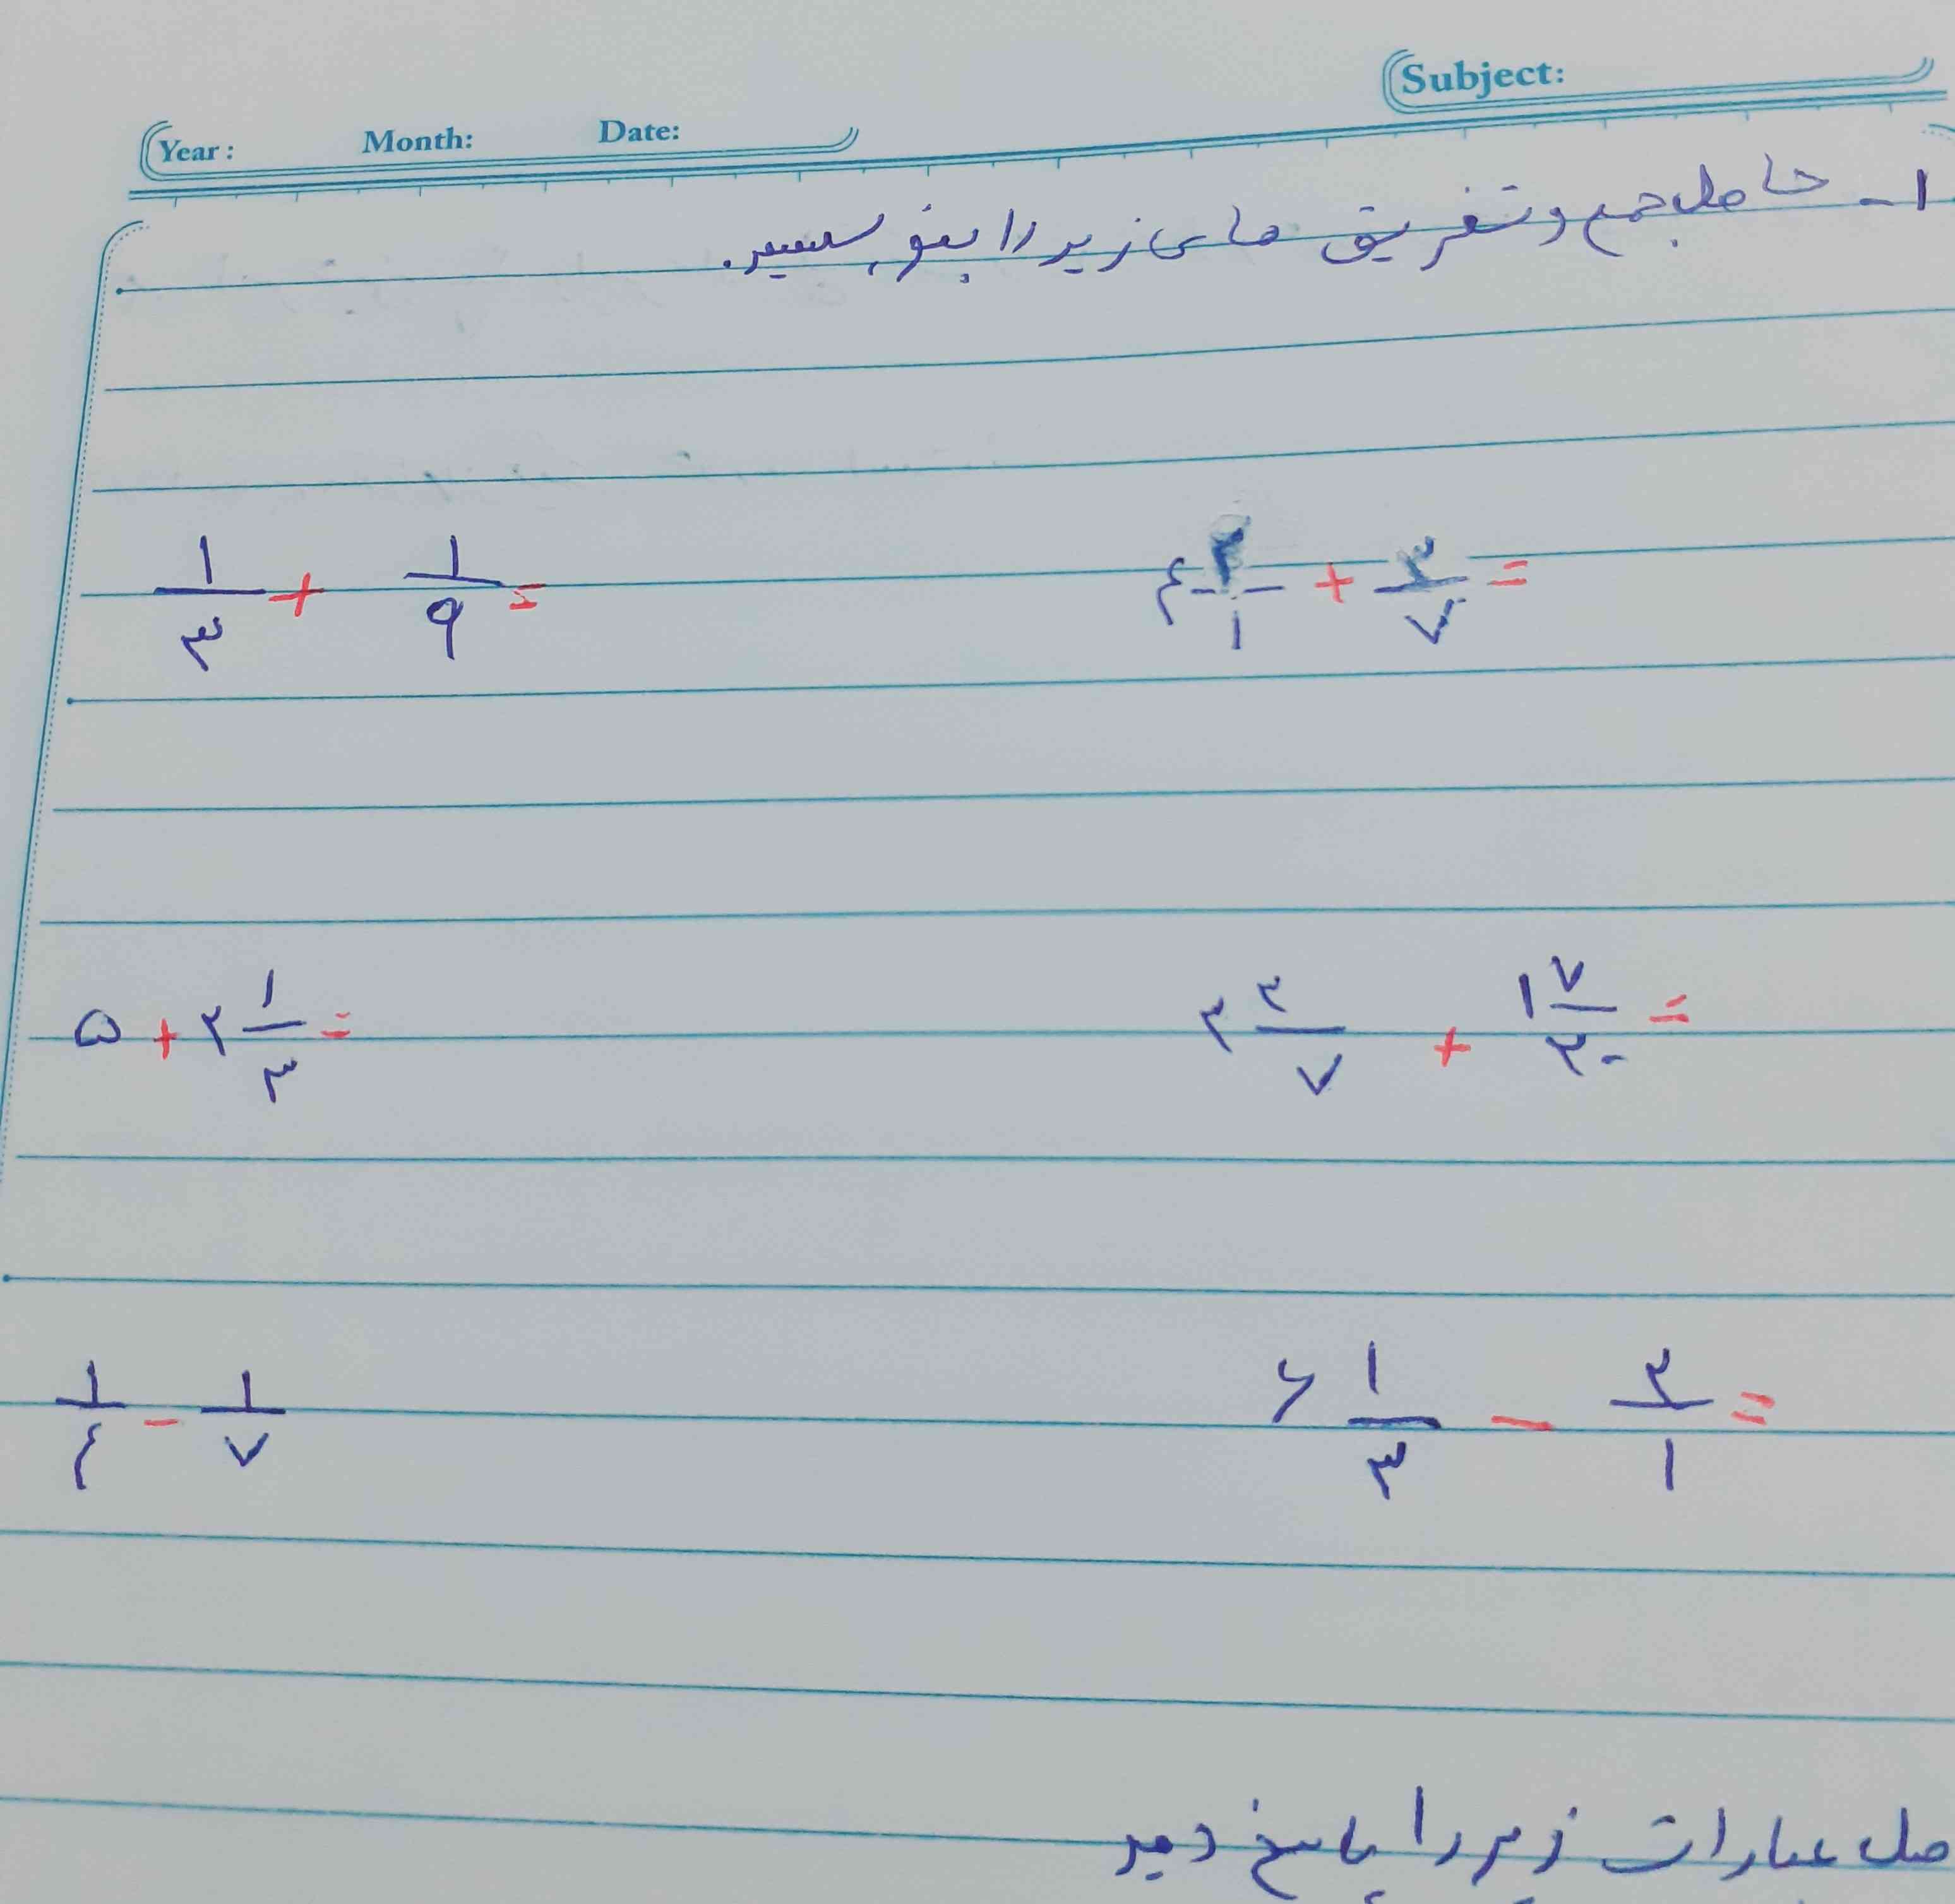 Subject:
Year: Month: Date:
۱- حاصل جمع و تفریق های زیر را بنویسید.
۱/۳ + ۱/۹ =
۴ ۲/۱ + ۳/۷ =
۵ + ۲ ۱/۳ =
۲ ۲/۷ + ۱ ۷/۲۰ =
۱/۴ - ۱/۷
۶ ۱/۳ - ۲/۱ =
صل عبارات زیر را پاسخ دهید